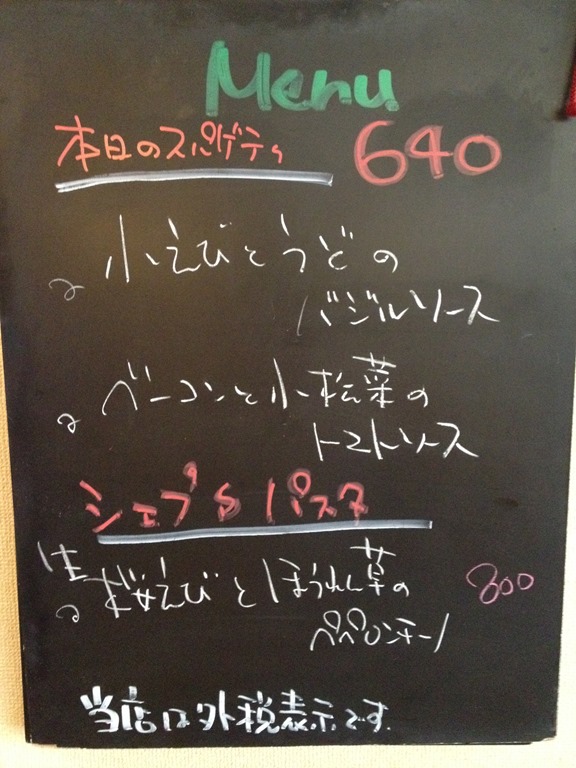 Menu
本日のスパゲティ 640
小えびとうどの
バジルソース
ベーコンと小松菜の
トマトソース
シェフ'S パスタ
生桜えびとほうれん草の 800
ペペロンチーノ
当店は外税表示です